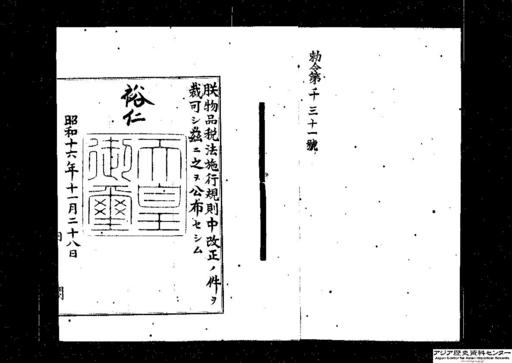 勅令第千三十一號
朕物品税法施行規則中改正ノ件ヲ
裁可シ茲ニ之ヲ公布セシム
裕仁
天皇
御璽
昭和十六年十一月二十八日
アジア歴史資料センター
Japan Center for Asian Historical Records